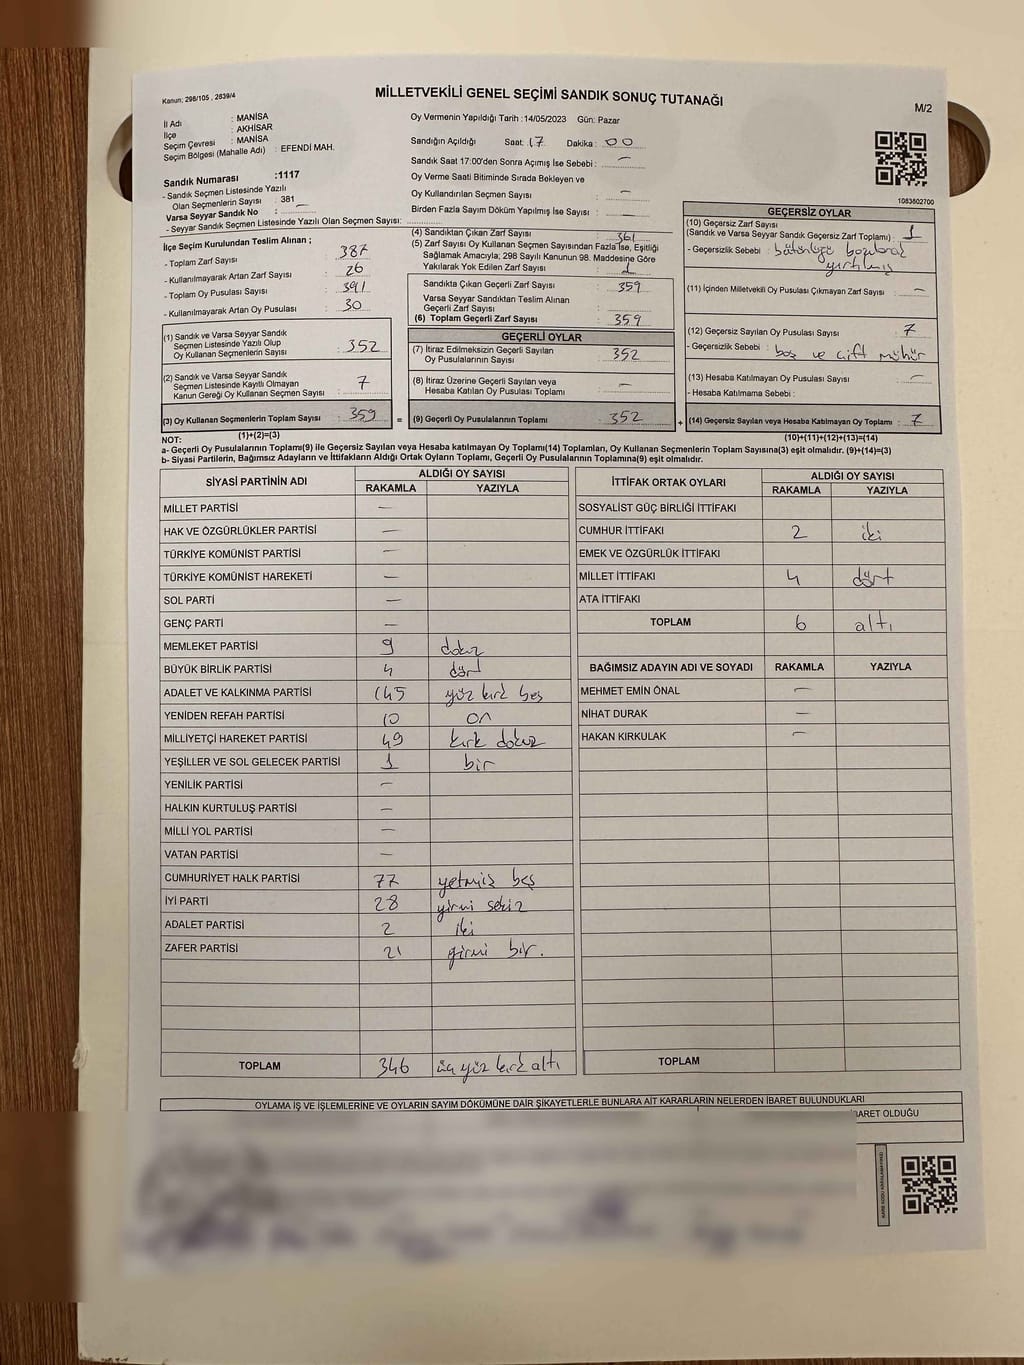 Kanun; 298/105 , 2839/4
MİLLETVEKİLİ GENEL SEÇİMİ SANDIK SONUÇ TUTANAĞI
M/2
İl Adı : MANİSA
İlçe : AKHİSAR
Seçim Çevresi : MANİSA
Seçim Bölgesi (Mahalle Adı) : EFENDİ MAH.
Sandık Numarası :1117
- Sandık Seçmen Listesinde Yazılı
Olan Seçmenlerin Sayısı : 381
Varsa Seyyar Sandık No : —
- Seyyar Sandık Seçmen Listesinde Yazılı Olan Seçmen Sayısı:
Oy Vermenin Yapıldığı Tarih :14/05/2023 Gün: Pazar
Sandığın Açıldığı Saat: 17 Dakika: 00
Sandık Saat 17:00'den Sonra Açımış İse Sebebi : —
Oy Verme Saati Bitiminde Sırada Bekleyen ve
Oy Kullandırılan Seçmen Sayısı : —
Birden Fazla Sayım Döküm Yapılmış İse Sayısı : —
1083802700
İlçe Seçim Kurulundan Teslim Alınan ;
- Toplam Zarf Sayısı : 387
- Kullanılmayarak Artan Zarf Sayısı : 26
- Toplam Oy Pusulası Sayısı : 391
- Kullanılmayarak Artan Oy Pusulası : 30
(1) Sandık ve Varsa Seyyar Sandık
Seçmen Listesinde Yazılı Olup
Oy Kullanan Seçmenlerin Sayısı : 352
(2) Sandık ve Varsa Seyyar Sandık
Seçmen Listesinde Kayıtlı Olmayan
Kanun Gereği Oy Kullanan Seçmen Sayısı : 7
(3) Oy Kullanan Seçmenlerin Toplam Sayısı : 359 =
(1)+(2)=(3)
(4) Sandıktan Çıkan Zarf Sayısı : 361
(5) Zarf Sayısı Oy Kullanan Seçmen Sayısından Fazla İse, Eşitliği
Sağlamak Amacıyla; 298 Sayılı Kanunun 98. Maddesine Göre
Yakılarak Yok Edilen Zarf Sayısı : 1
Sandıkta Çıkan Geçerli Zarf Sayısı : 359
Varsa Seyyar Sandıktan Teslim Alınan
Geçerli Zarf Sayısı :
(6) Toplam Geçerli Zarf Sayısı : 359
GEÇERLİ OYLAR
(7) İtiraz Edilmeksizin Geçerli Sayılan
Oy Pusulalarının Sayısı : 352
(8) İtiraz Üzerine Geçerli Sayılan veya
Hesaba Katılan Oy Pusulası Toplamı : —
(9) Geçerli Oy Pusulalarının Toplamı : 352 +
GEÇERSİZ OYLAR
(10) Geçersiz Zarf Sayısı
(Sandık ve Varsa Seyyar Sandık Geçersiz Zarf Toplamı) : 1
- Geçersizlik Sebebi : bütünlüğü bozularak
yırtılmış
(11) İçinden Milletvekili Oy Pusulası Çıkmayan Zarf Sayısı : —
(12) Geçersiz Sayılan Oy Pusulası Sayısı : 7
- Geçersizlik Sebebi : boş ve çift mühür
(13) Hesaba Katılmayan Oy Pusulası Sayısı : —
- Hesaba Katılmama Sebebi :
(14) Geçersiz Sayılan veya Hesaba Katılmayan Oy Toplamı : 7
(10)+(11)+(12)+(13)=(14)
NOT:
a- Geçerli Oy Pusulalarının Toplamı(9) ile Geçersiz Sayılan veya Hesaba katılmayan Oy Toplamı(14) Toplamları, Oy Kullanan Seçmenlerin Toplam Sayısına(3) eşit olmalıdır. (9)+(14)=(3)
b- Siyasi Partilerin, Bağımsız Adayların ve İttifakların Aldığı Ortak Oyların Toplamı, Geçerli Oy Pusulalarının Toplamına(9) eşit olmalıdır.
SİYASİ PARTİNİN ADI ALDIĞI OY SAYISI
RAKAMLA YAZIYLA
MİLLET PARTİSİ —
HAK VE ÖZGÜRLÜKLER PARTİSİ —
TÜRKİYE KOMÜNİST PARTİSİ —
TÜRKİYE KOMÜNİST HAREKETİ —
SOL PARTİ —
GENÇ PARTİ —
MEMLEKET PARTİSİ 9 dokuz
BÜYÜK BİRLİK PARTİSİ 4 dört
ADALET VE KALKINMA PARTİSİ 145 yüz kırk beş
YENİDEN REFAH PARTİSİ 10 on
MİLLİYETÇİ HAREKET PARTİSİ 49 kırk dokuz
YEŞİLLER VE SOL GELECEK PARTİSİ 1 bir
YENİLİK PARTİSİ —
HALKIN KURTULUŞ PARTİSİ —
MİLLİ YOL PARTİSİ —
VATAN PARTİSİ —
CUMHURİYET HALK PARTİSİ 77 yetmiş beş
İYİ PARTİ 28 yirmi sekiz
ADALET PARTİSİ 2 iki
ZAFER PARTİSİ 21 yirmi bir.
TOPLAM 346 üç yüz kırk altı
İTTİFAK ORTAK OYLARI ALDIĞI OY SAYISI
RAKAMLA YAZIYLA
SOSYALİST GÜÇ BİRLİĞİ İTTİFAKI
CUMHUR İTTİFAKI 2 iki
EMEK VE ÖZGÜRLÜK İTTİFAKI
MİLLET İTTİFAKI 4 dört
ATA İTTİFAKI
TOPLAM 6 altı
BAĞIMSIZ ADAYIN ADI VE SOYADI RAKAMLA YAZIYLA
MEHMET EMİN ÖNAL —
NİHAT DURAK —
HAKAN KIRKULAK —
TOPLAM
OYLAMA İŞ VE İŞLEMLERİNE VE OYLARIN SAYIM DÖKÜMÜNE DAİR ŞİKAYETLERLE BUNLARA AİT KARARLARIN NELERDEN İBARET BULUNDUKLARI
BARET OLDUĞU